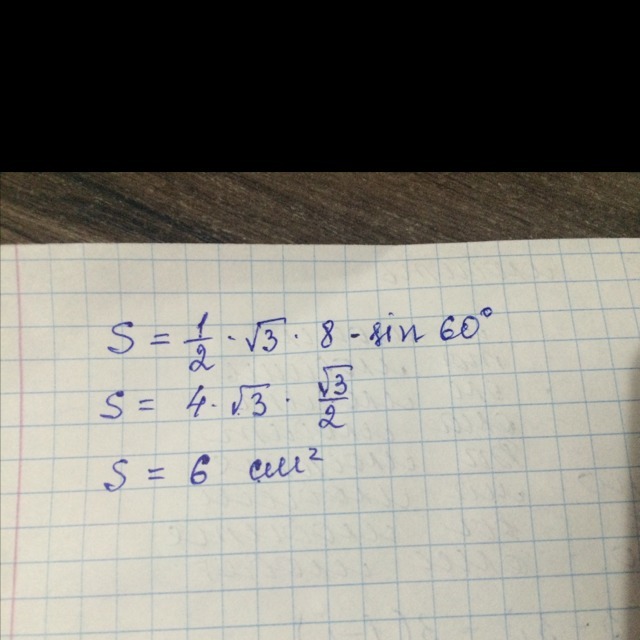 S = 1/2 · √3 · 8 · sin 60°
S = 4 · √3 · √3/2
S = 6 см²